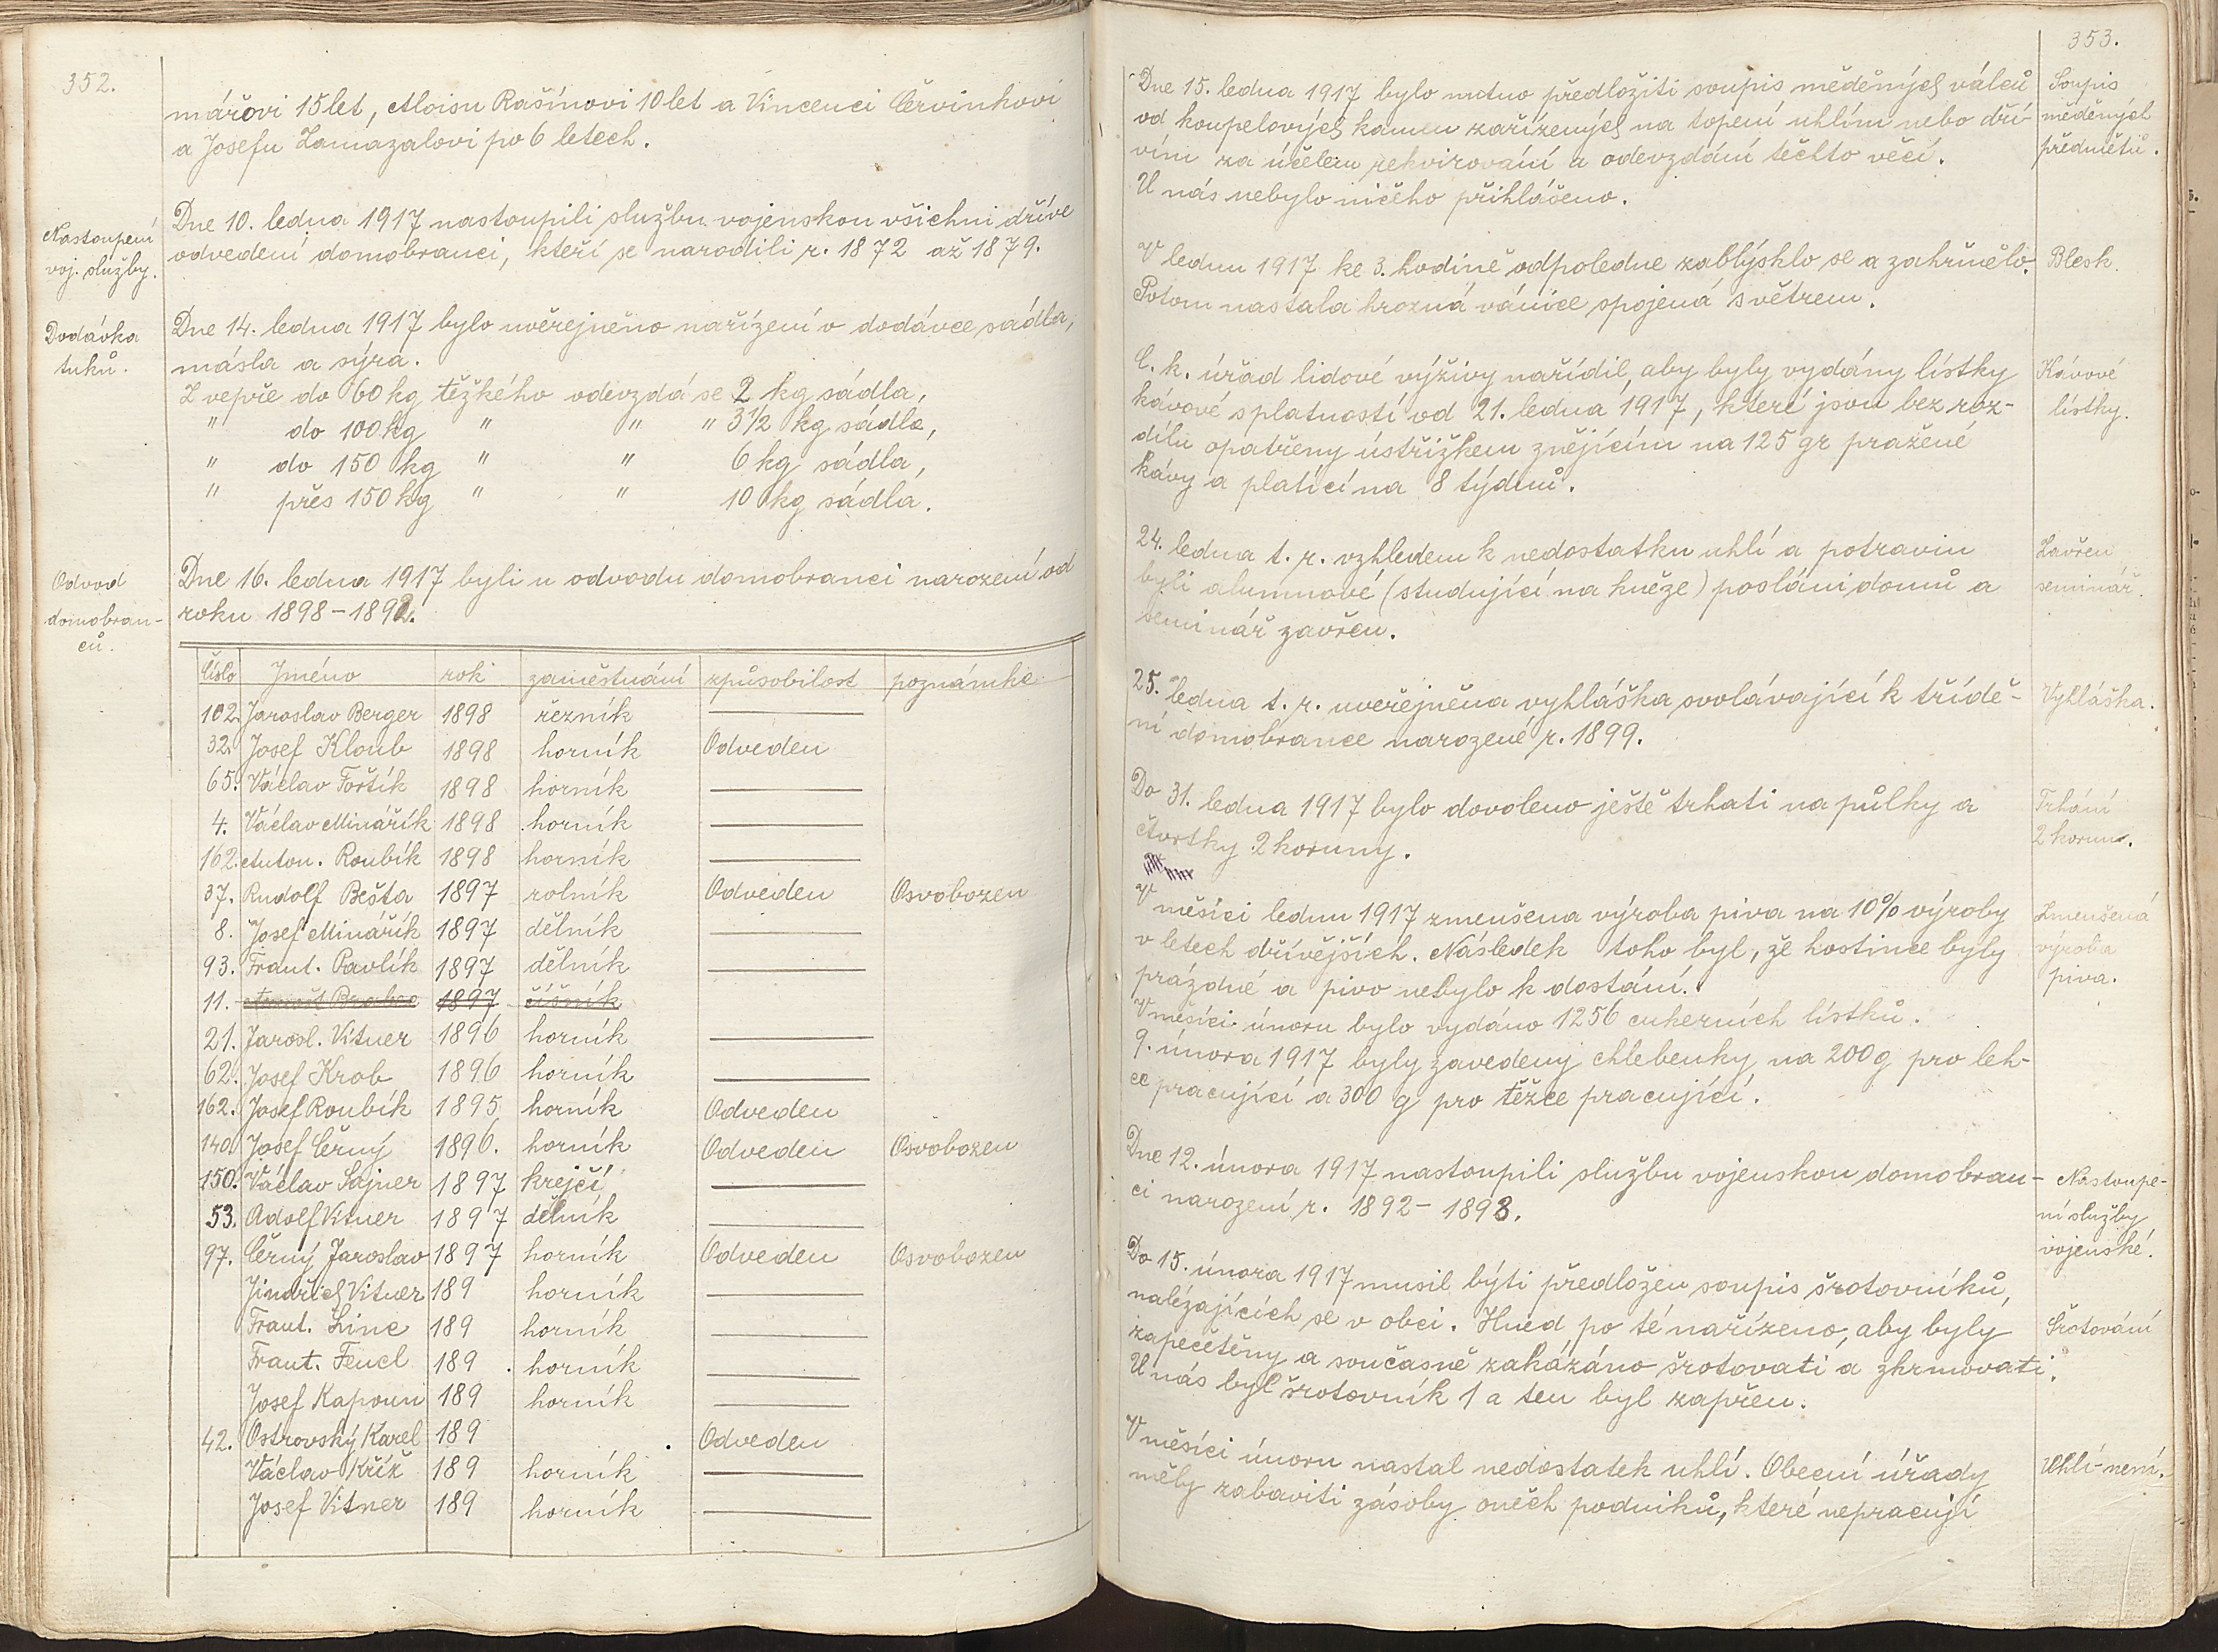 352.
mářovi 15 let, Aloisu Rašínovi 10 let a Vincenci Červinkovi
a Josefu Zamazalovi po 6 letech.
Nastoupení
voj. služby.
Dne 10. ledna 1917 nastoupili službu vojenskou všichni dříve
odvedení domobranci, kteří se narodili r. 1872 až 1879.
Dodávka
tuků.
Dne 14. ledna 1917 bylo uveřejněno nařízení o dodávce sádla,
másla a sýra.
Z vepře do 60 kg těžkého odevzdá se 2 kg sádla,
" do 100 kg " " " 3½ kg sádla,
" do 150 kg " " 6 kg sádla,
" přes 150 kg " " 10 kg sádla.
Odvod
domobran-
ců.
Dne 16. ledna 1917 byli u odvodu domobranci narození od
roku 1898 - 1892.
Číslo Jméno rok zaměstnání způsobilost poznámka
102. Jaroslav Berger 1898 řezník —
32. Josef Kloub 1898 horník Odveden
65. Václav Foštík 1898 horník —
4. Václav Minářík 1898 horník —
162. Anton. Roubík 1898 horník —
37. Rudolf Bešta 1897 rolník Odveden Osvobozen
8. Josef Minářík 1897 dělník —
93. Frant. Pavlík 1897 dělník —
11. Arnošt Brabec 1897 číšník
21. Jarosl. Vitner 1896 horník —
62. Josef Krob 1896 horník —
162. Josef Roubík 1895 horník Odveden
140. Josef Černý 1896. horník Odveden Osvobozen
150. Václav Sajner 1897 krejčí —
53. Adolf Vitner 1897 dělník —
97. Černý Jaroslav 1897 horník Odveden Osvobozen
Jindřich Vitner 189 horník —
Frant. Linc 189 horník —
Frant. Fencl 189 . horník —
Josef Kapoun 189 horník —
42. Ostrovský Karel 189 . Odveden
Václav Kříž 189 horník —
Josef Vitner 189 horník —
353.
Dne 15. ledna 1917 bylo nutno předložiti soupis měděných válců
od koupelových kamen zařízených na topení uhlím nebo dří-
vím za účelem rekvirování a odevzdání těchto věcí.
U nás nebylo ničeho přihlášeno.
Soupis
měděných
předmětů.
V lednu 1917 ke 3. hodině odpoledne zablýsklo se a zahřmělo.
Potom nastala hrozná vánice spojená s větrem.
Blesk.
C. k. úřad lidové výživy nařídil, aby byly vydány lístky
kávové s platností od 21. ledna 1917, které jsou bez roz-
dílu opatřeny ústřižkem znějícím na 125 gr pražené
kávy a platící na 8 týdnů.
Kávové
lístky.
24. ledna t. r. vzhledem k nedostatku uhlí a potravin
byli alumnové (studující na kněze) posláni domů a
seminář zavřen.
Zavřen
seminář.
25. ledna t. r. uveřejněna vyhláška svolávající k třídě-
ní domobrance narozené r. 1899.
Vyhláška.
Do 31. ledna 1917 bylo dovoleno ještě trhati na půlky a
čtvrtky 2 koruny.
Trhání
2 korun.
V měsíci lednu 1917 zmenšena výroba piva na 10% výroby
v letech dřívějších. Následek toho byl, že hostince byly
prázdné a pivo nebylo k dostání.
Zmenšená
výroba
piva.
V měsíci únoru bylo vydáno 1256 cukerních lístků.
9. února 1917 byly zavedeny chlebenky na 200 g pro leh-
ce pracující a 300 g pro těžce pracující.
Dne 12. února 1917 nastoupili službu vojenskou domobran-
ci narození r. 1892 - 1898.
Nastoupe-
ní služby
vojenské.
Do 15. února 1917 musil býti předložen soupis šrotovníků,
nalézajících se v obci. Hned po té nařízeno, aby byly
zapečetěny a současně zakázáno šrotovati a zkrmovati.
U nás byl šrotovník 1 a ten byl zapřen.
Šrotování
V měsíci únoru nastal nedostatek uhlí. Obecní úřady
měly zabaviti zásoby oněch podniků, které nepracují
Uhlí není.